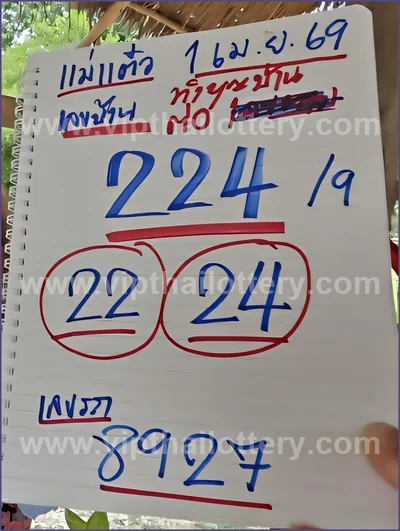 แม่แต๋ว 1 เม.ย. 69
เลขบ้าน ทำบุญบ้าน
ต่อ
www.vipthailottery.com
224 /9
www.vipthailottery.com
22 24
เลขรถ
www.vipthailottery.com
8927